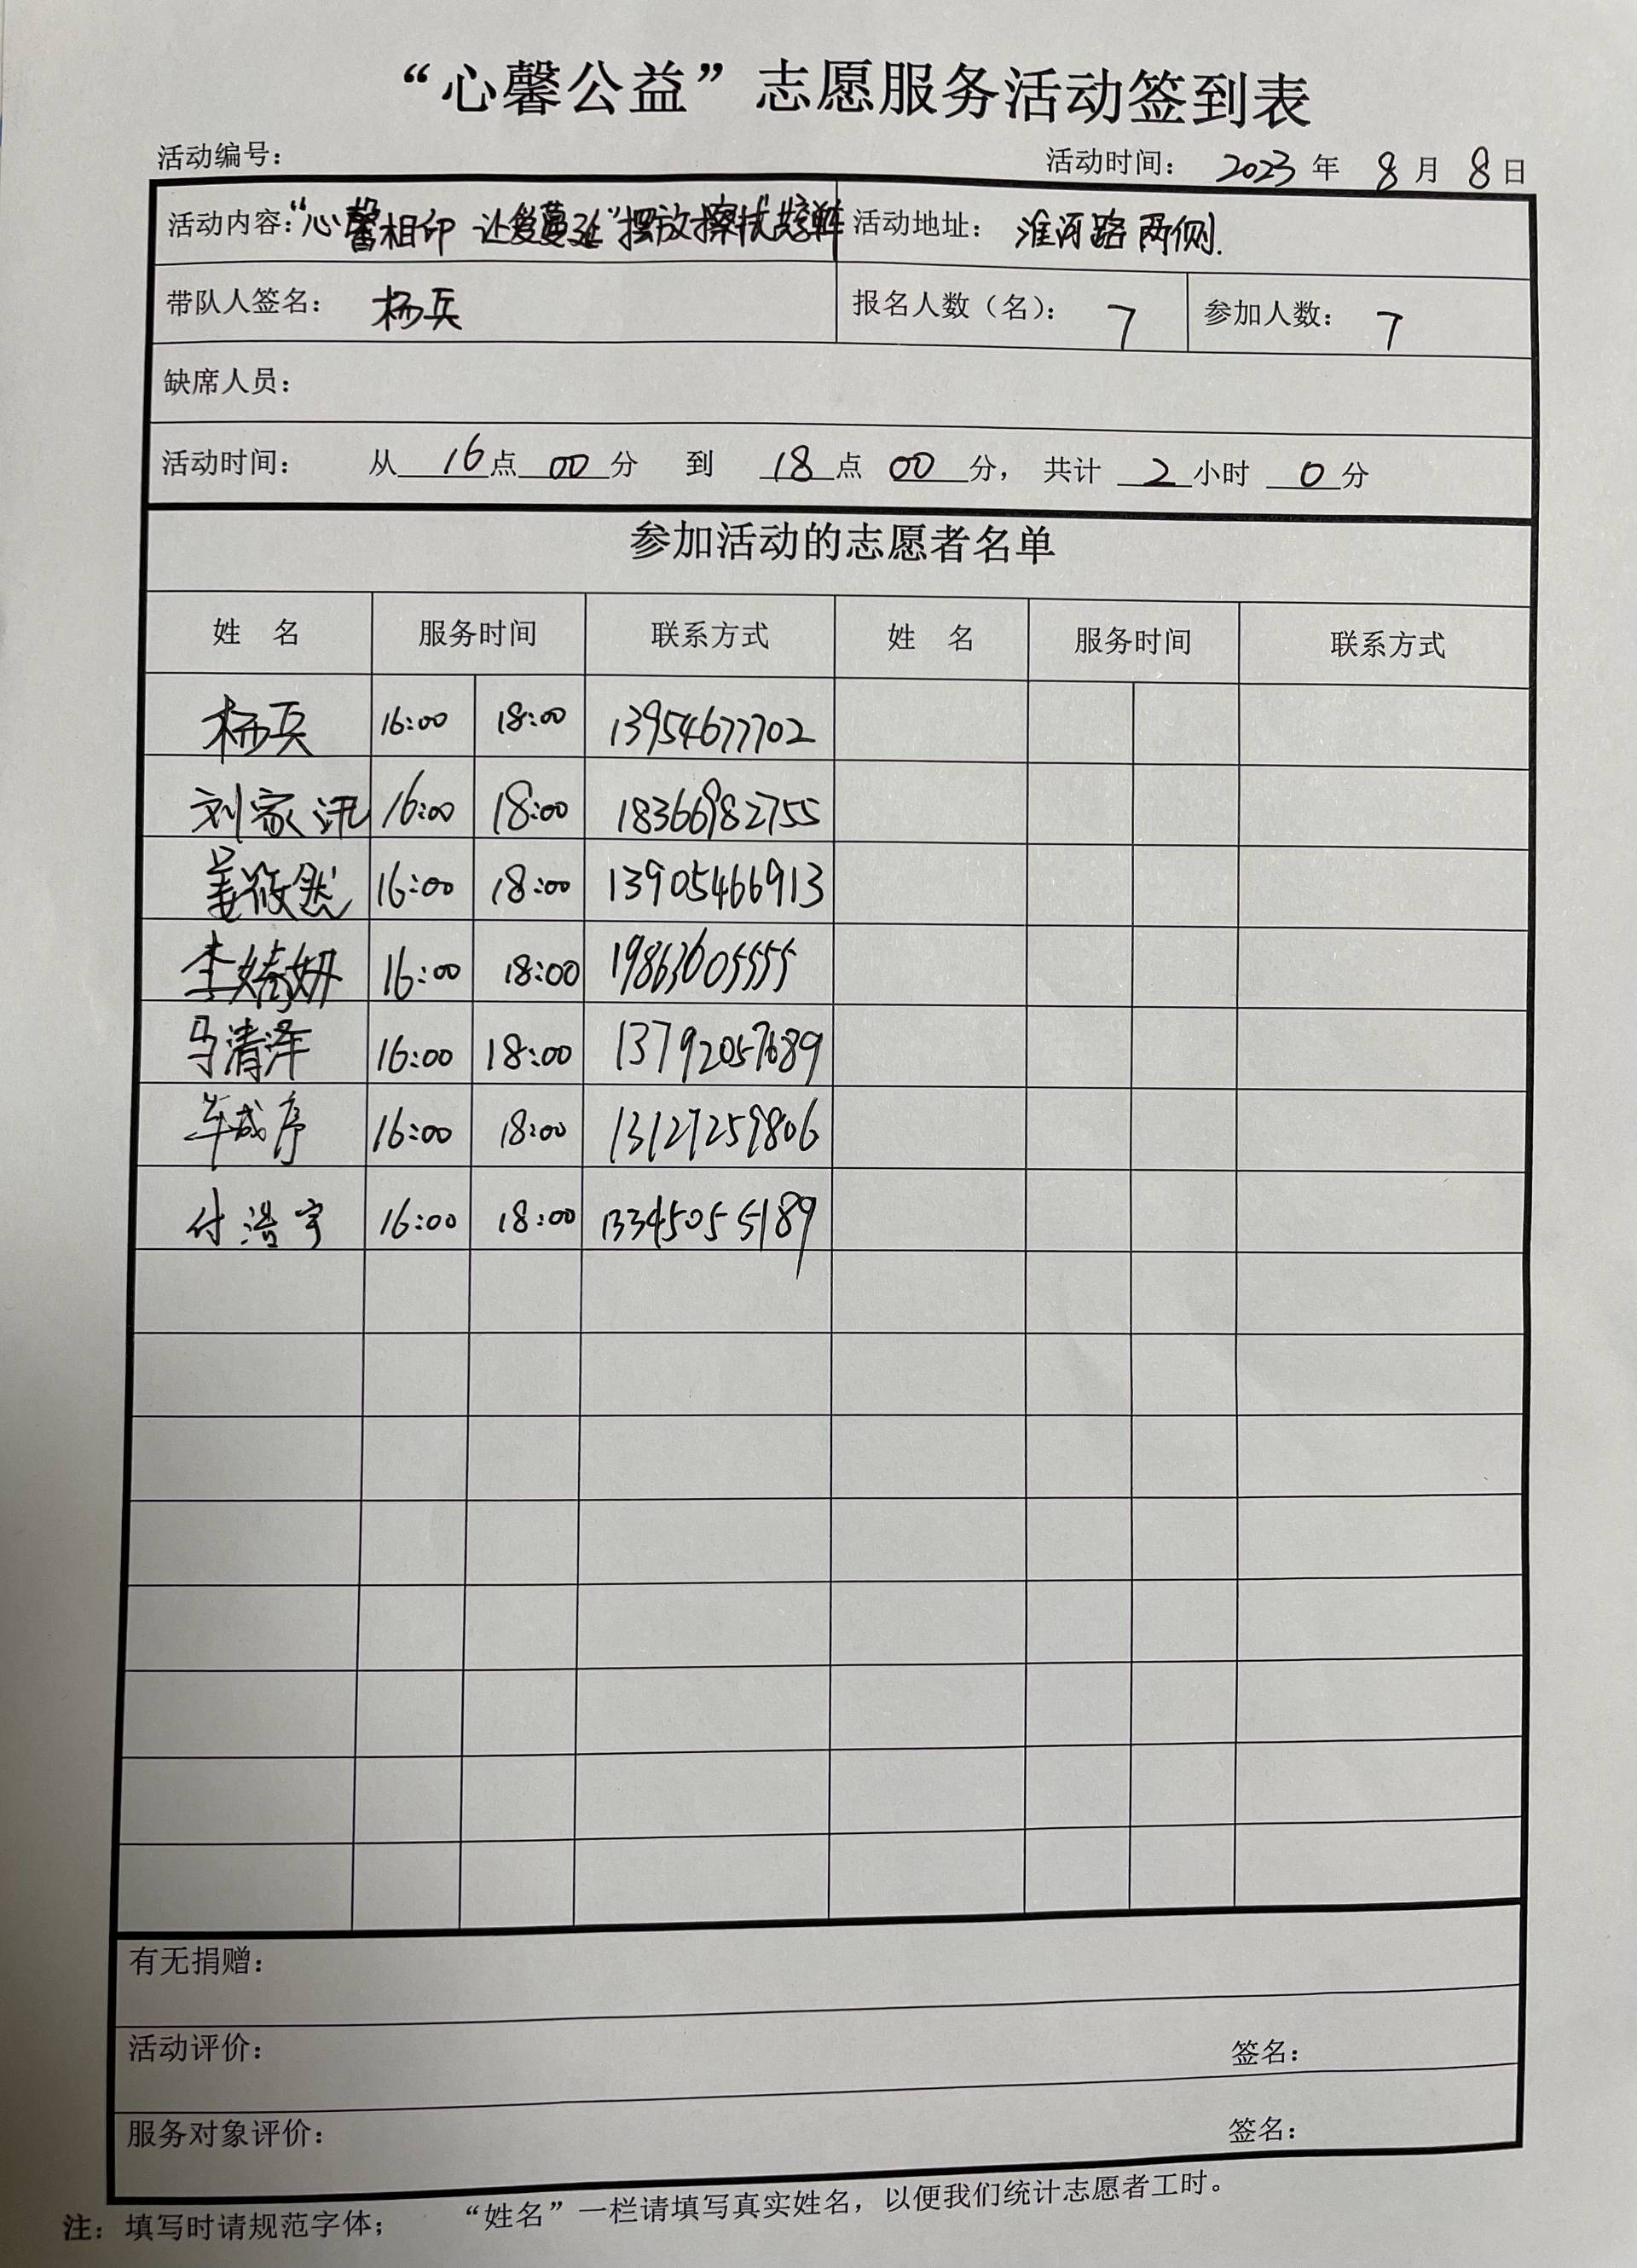 “心馨公益”志愿服务活动签到表
活动编号： 活动时间： 2023 年 8 月 8 日
活动内容：“心馨相印 让爱蔓延”摆放擦拭共享单车 活动地址： 淮河路两侧.
带队人签名： 杨兵 报名人数（名）： 7 参加人数： 7
缺席人员：
活动时间： 从 16 点 00 分 到 18 点 00 分， 共计 2 小时 0 分
参加活动的志愿者名单
姓 名 服务时间 联系方式 姓 名 服务时间 联系方式
杨兵 16:00 18:00 13954677702
刘家汛 16:00 18:00 18366982755
姜筱然 16:00 18:00 13905466913
李婧妍 16:00 18:00 19863605555
马清泽 16:00 18:00 13792057689
牟成序 16:00 18:00 13127259806
付浩宇 16:00 18:00 13345055189
有无捐赠：
活动评价： 签名：
服务对象评价： 签名：
注：填写时请规范字体； “姓名”一栏请填写真实姓名，以便我们统计志愿者工时。